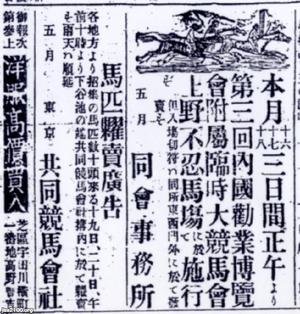 本月十六十七十八三日間正午より
第三回內國勸業博覽
會附屬臨時大競馬會
上野不忍馬塲に於て施行
但入塲切符は同所東西門外に於て發
賣す
五月 同會事務所
馬匹糶賣廣告
各地方より招集の馬匹數十頭來る十九日二十日午
前十時より下谷池の端共同競馬會社構內に於て糶賣
す雨天は順延
五月 東京 共同競馬會社
御報次
第參上
洋服高價買入
芝區宇田川橫町
一番地高野
jaa2100.org